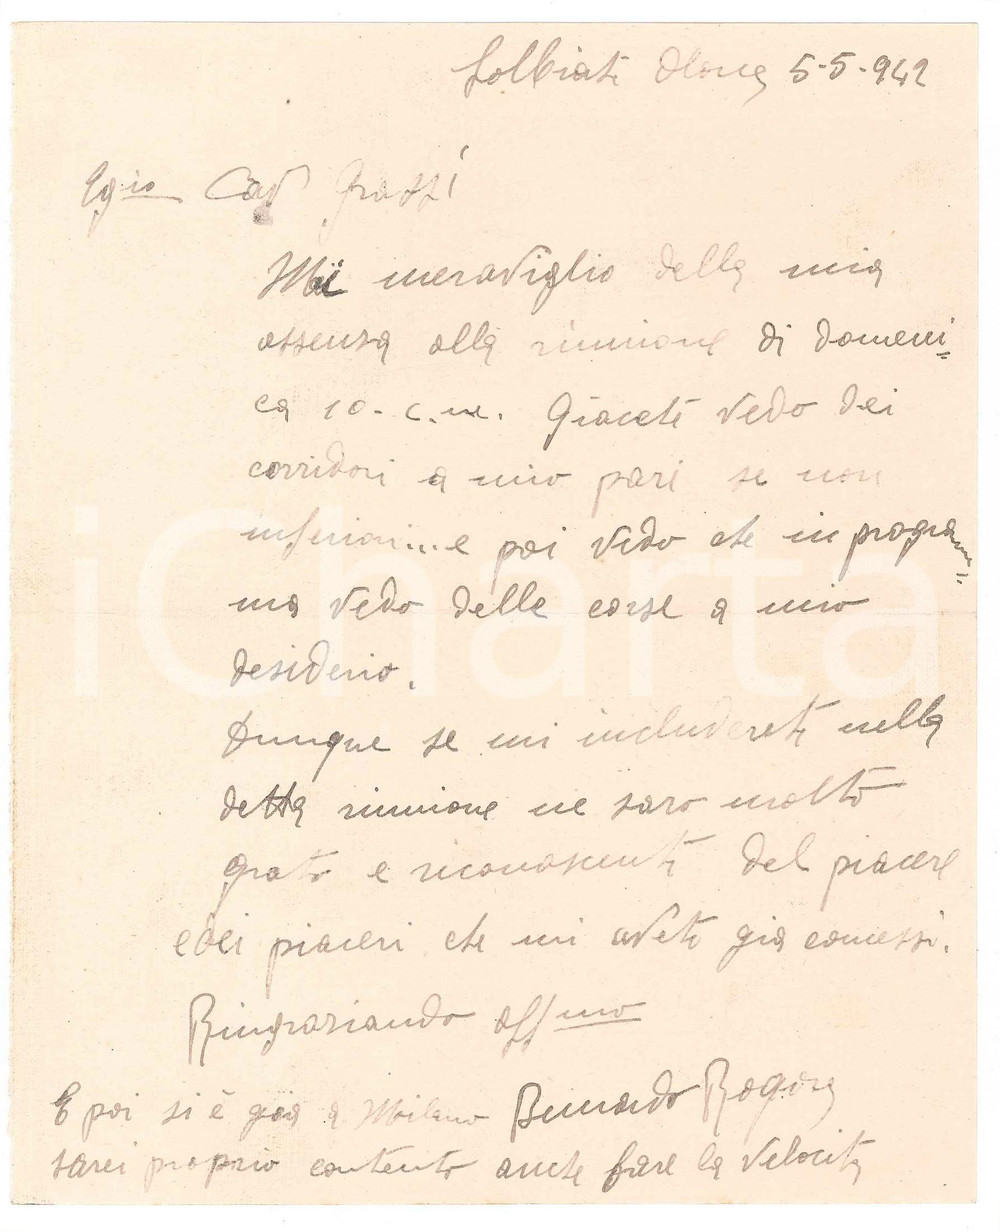 Solbiate Olona 5-5-942
Egio Cav Grassi
Mi meraviglio della mia
assenza alla riunione di domeni=
ca 10-c.m. Giacete vedo dei
corridori a mio pari se non
inferiori... e poi vedo che in program=
ma vedo delle corse a mio
desiderio.
Dunque se mi includerete nella
detta riunione ne saro molto
grato e riconoscente del piacere
e dei piaceri che mi avete già comessi.
Ringraziando affmo
Bernardo Rogora
E poi si è già a Milano
sarei proprio contento anche fare la velocità
iCharta